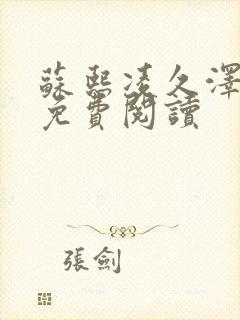 蘇熙凌久澤
免費閱讀
張劍